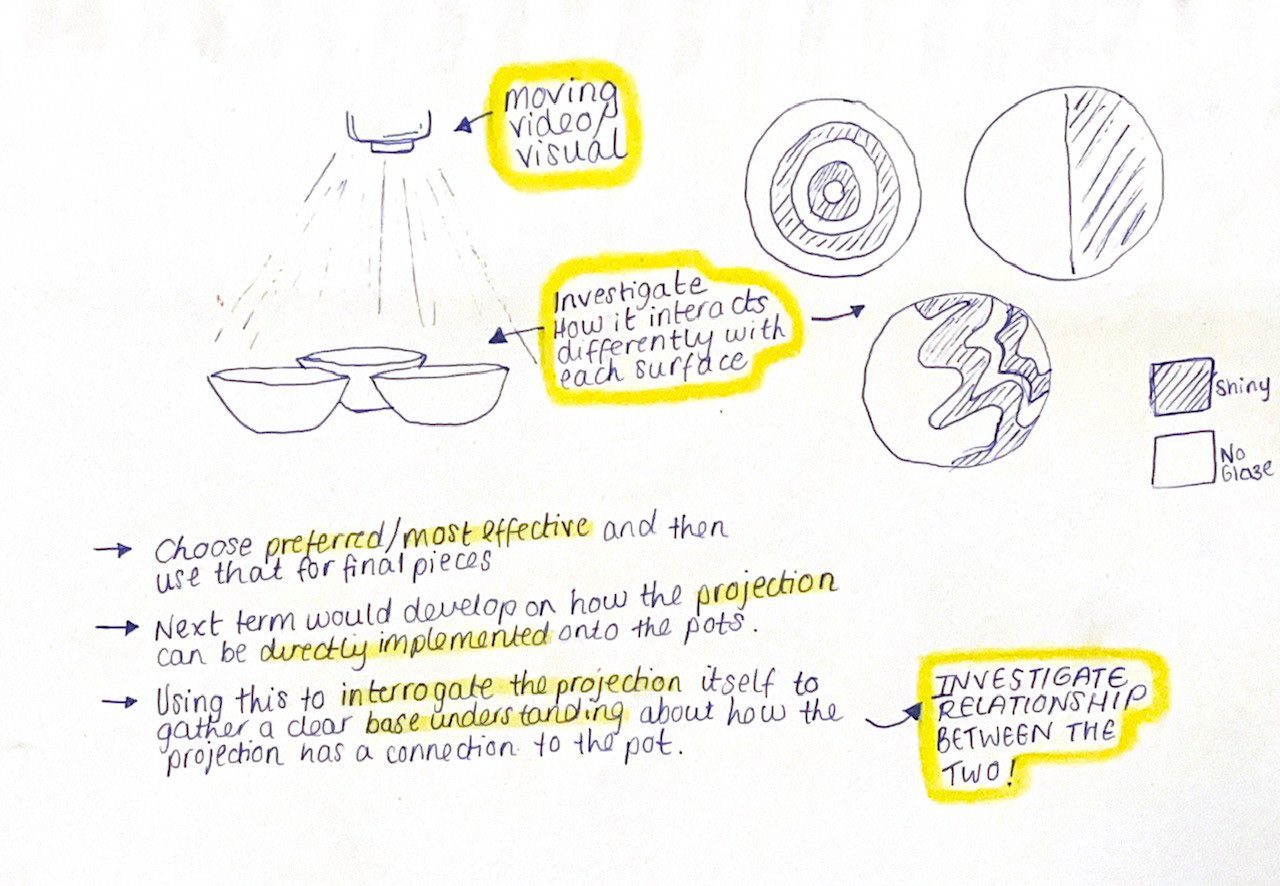 moving
video/
visual
Investigate
How it interacts
differently with
each surface
shiny
No
Glaze
→ Choose preferred/most effective and then
use that for final pieces
→ Next term would develop on how the projection
can be directly implemented onto the pots.
→ Using this to interrogate the projection itself to
gather a clear base understanding about how the
projection has a connection to the pot.
INVESTIGATE
RELATIONSHIP
BETWEEN THE
TWO!